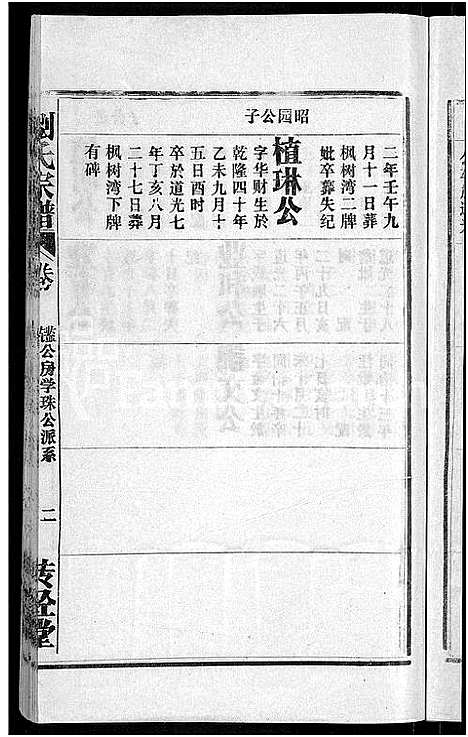 昭园公子
二年壬午九
月十一日葬
枫树湾二牌
妣卒葬失纪
植琳公
字华财生於
乾隆四十年
乙未九月十
五日酉时
卒於道光七
年丁亥八月
二十七日葬
枫树湾下牌
有碑
刘氏宗谱
卷
公房学珠公派系
二
堂